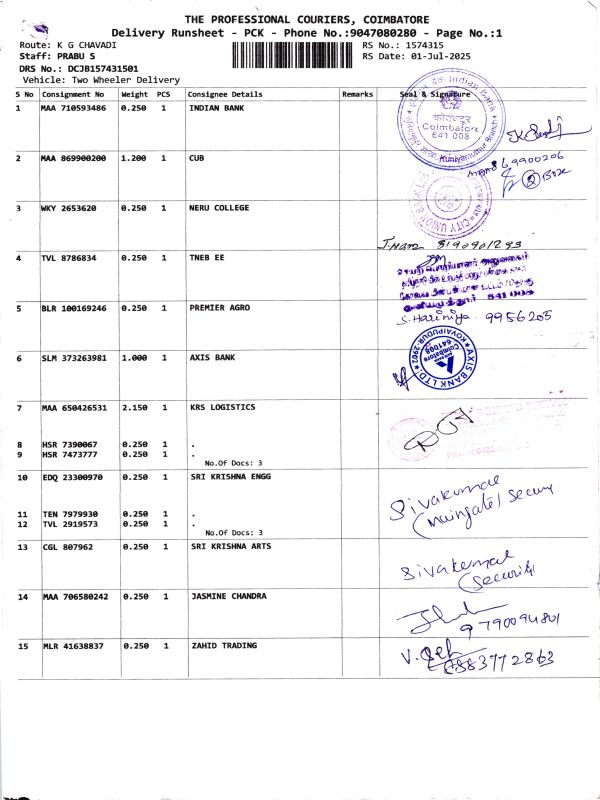 THE PROFESSIONAL COURIERS, COIMBATORE
Delivery Runsheet - PCK - Phone No.:9047080280 - Page No.:1
Route: K G CHAVADI RS No.: 1574315
Staff: PRABU S RS Date: 01-Jul-2025
DRS No.: DCJB157431501
Vehicle: Two Wheeler Delivery
S No Consignment No Weight PCS Consignee Details Remarks Seal & Signature
1 MAA 710593486 0.250 1 INDIAN BANK
Indian Bank
कोयंबटूर
Coimbatore
641 008
Kuniyamuthur Branch
2 MAA 869900200 1.200 1 CUB
CITY UNION BANK LTD
3 WKY 2653620 0.250 1 NERU COLLEGE
4 TVL 8786834 0.250 1 TNEB EE
641 008
5 BLR 100169246 0.250 1 PREMIER AGRO
S. Hariniya 9956205
6 SLM 373263981 1.000 1 AXIS BANK
AXIS BANK LTD. KOVAIPUDUR-2902
Coimbatore 641008
7 MAA 650426531 2.150 1 KRS LOGISTICS
8 HSR 7390067 0.250 1 .
9 HSR 7473777 0.250 1 .
No.Of Docs: 3
10 EDQ 23300970 0.250 1 SRI KRISHNA ENGG
Sivakumar
11 TEN 7979930 0.250 1 .
12 TVL 2919573 0.250 1 .
No.Of Docs: 3
13 CGL 807962 0.250 1 SRI KRISHNA ARTS
Sivakumar
(Security
14 MAA 706580242 0.250 1 JASMINE CHANDRA
9790094801
15 MLR 41638837 0.250 1 ZAHID TRADING